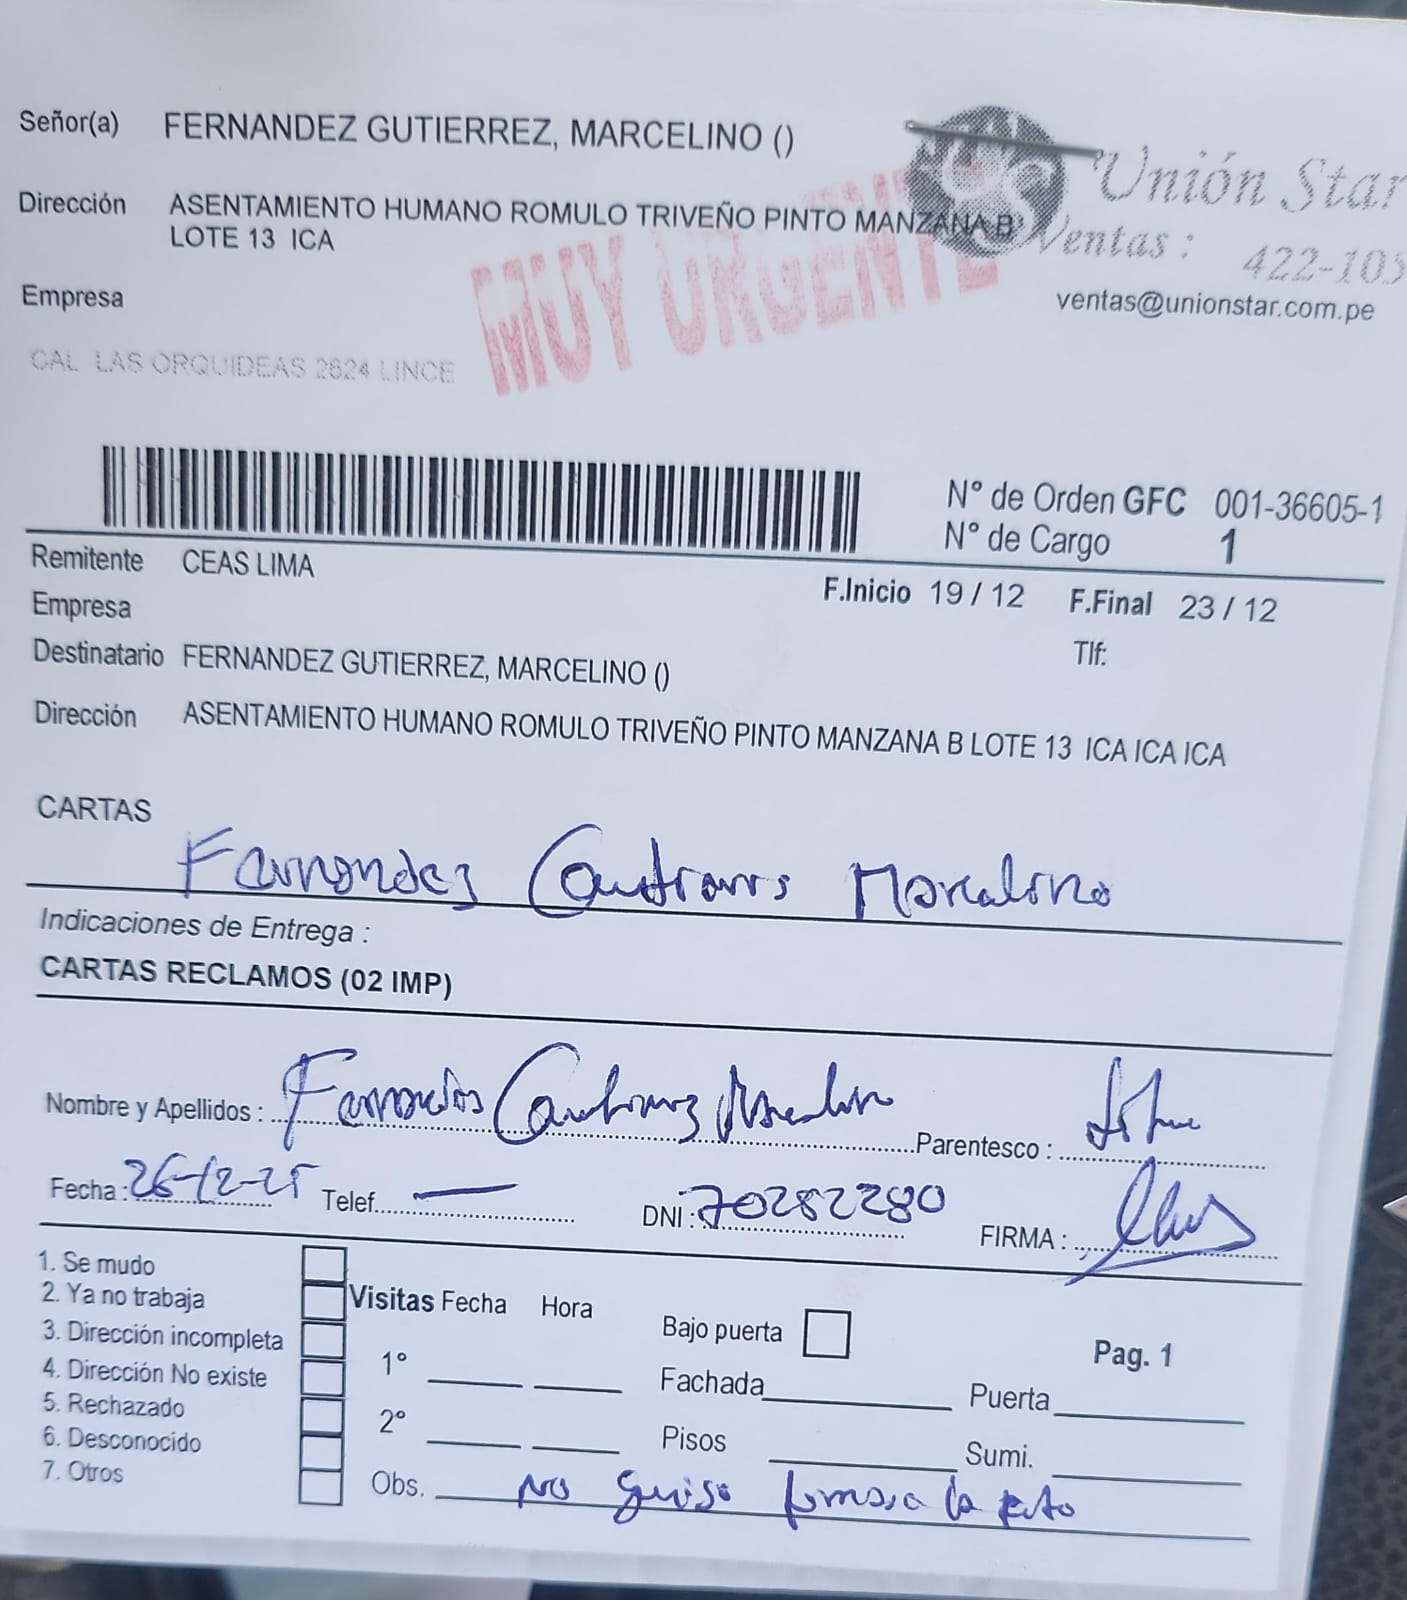 Señor(a) FERNANDEZ GUTIERREZ, MARCELINO ()
Unión Star
Dirección ASENTAMIENTO HUMANO ROMULO TRIVEÑO PINTO MANZANA B
LOTE 13 ICA
Ventas : 422-105
MUY URGENTE
Empresa
ventas@unionstar.com.pe
CAL LAS ORQUIDEAS 2624 LINCE
N° de Orden GFC 001-36605-1
N° de Cargo 1
Remitente CEAS LIMA
F.Inicio 19 / 12 F.Final 23 / 12
Empresa
Tlf:
Destinatario FERNANDEZ GUTIERREZ, MARCELINO ()
Dirección ASENTAMIENTO HUMANO ROMULO TRIVEÑO PINTO MANZANA B LOTE 13 ICA ICA ICA
CARTAS
Marcelino
Indicaciones de Entrega :
CARTAS RECLAMOS (02 IMP)
Nombre y Apellidos : Parentesco :
Fecha : 26-12-25 Telef. — DNI : 70282280 FIRMA :
1. Se mudo
2. Ya no trabaja
3. Dirección incompleta
4. Dirección No existe
5. Rechazado
6. Desconocido
7. Otros
Visitas Fecha Hora
1°
2°
Bajo puerta
Pag. 1
Fachada Puerta
Pisos Sumi.
Obs. no quiso la